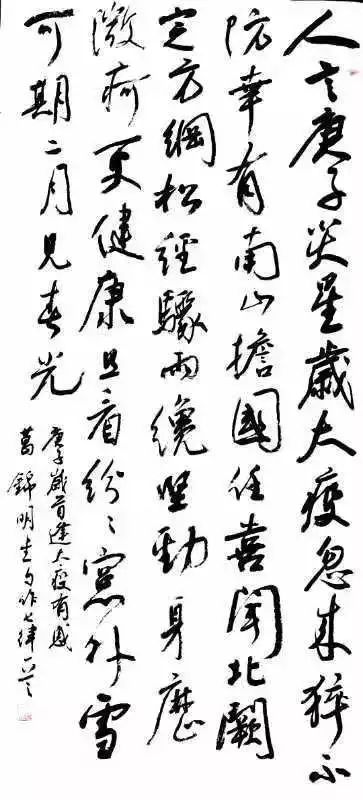 人言庚子災星歲大疫忽来猝不
防幸有南山擔國任喜聞北闕
定方綱松經驟雨纔堅勁身歷
微疴更健康且看紛〻窗外雪
可期二月見春光
庚子歲首逢大疫有感
葛錦明句作七律